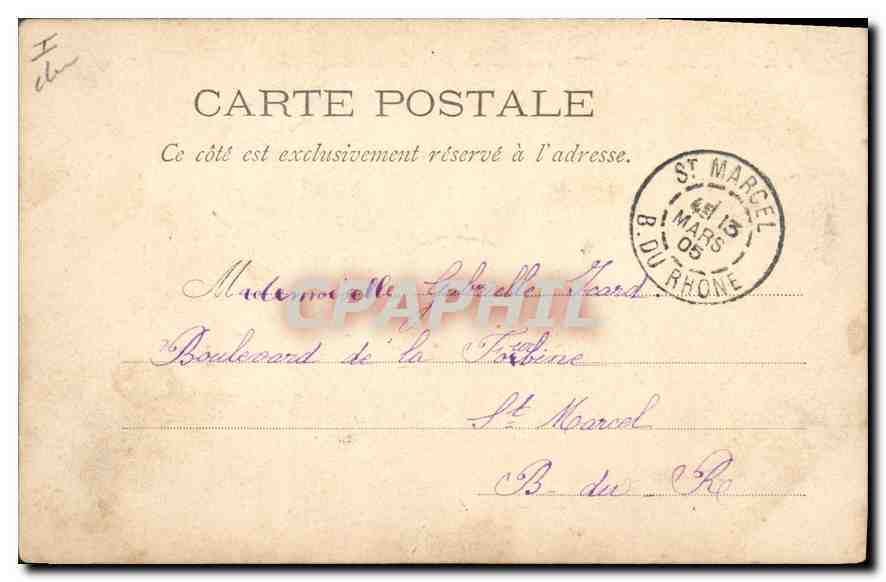 I
CARTE POSTALE
Ce côté est exclusivement réservé à l'adresse.
ST MARCEL
13
MARS
05
B. DU RHONE
CPAPHIL
Mademoiselle Gabrielle Icard
Boulevard de la Forbine
St Marcel
B du R